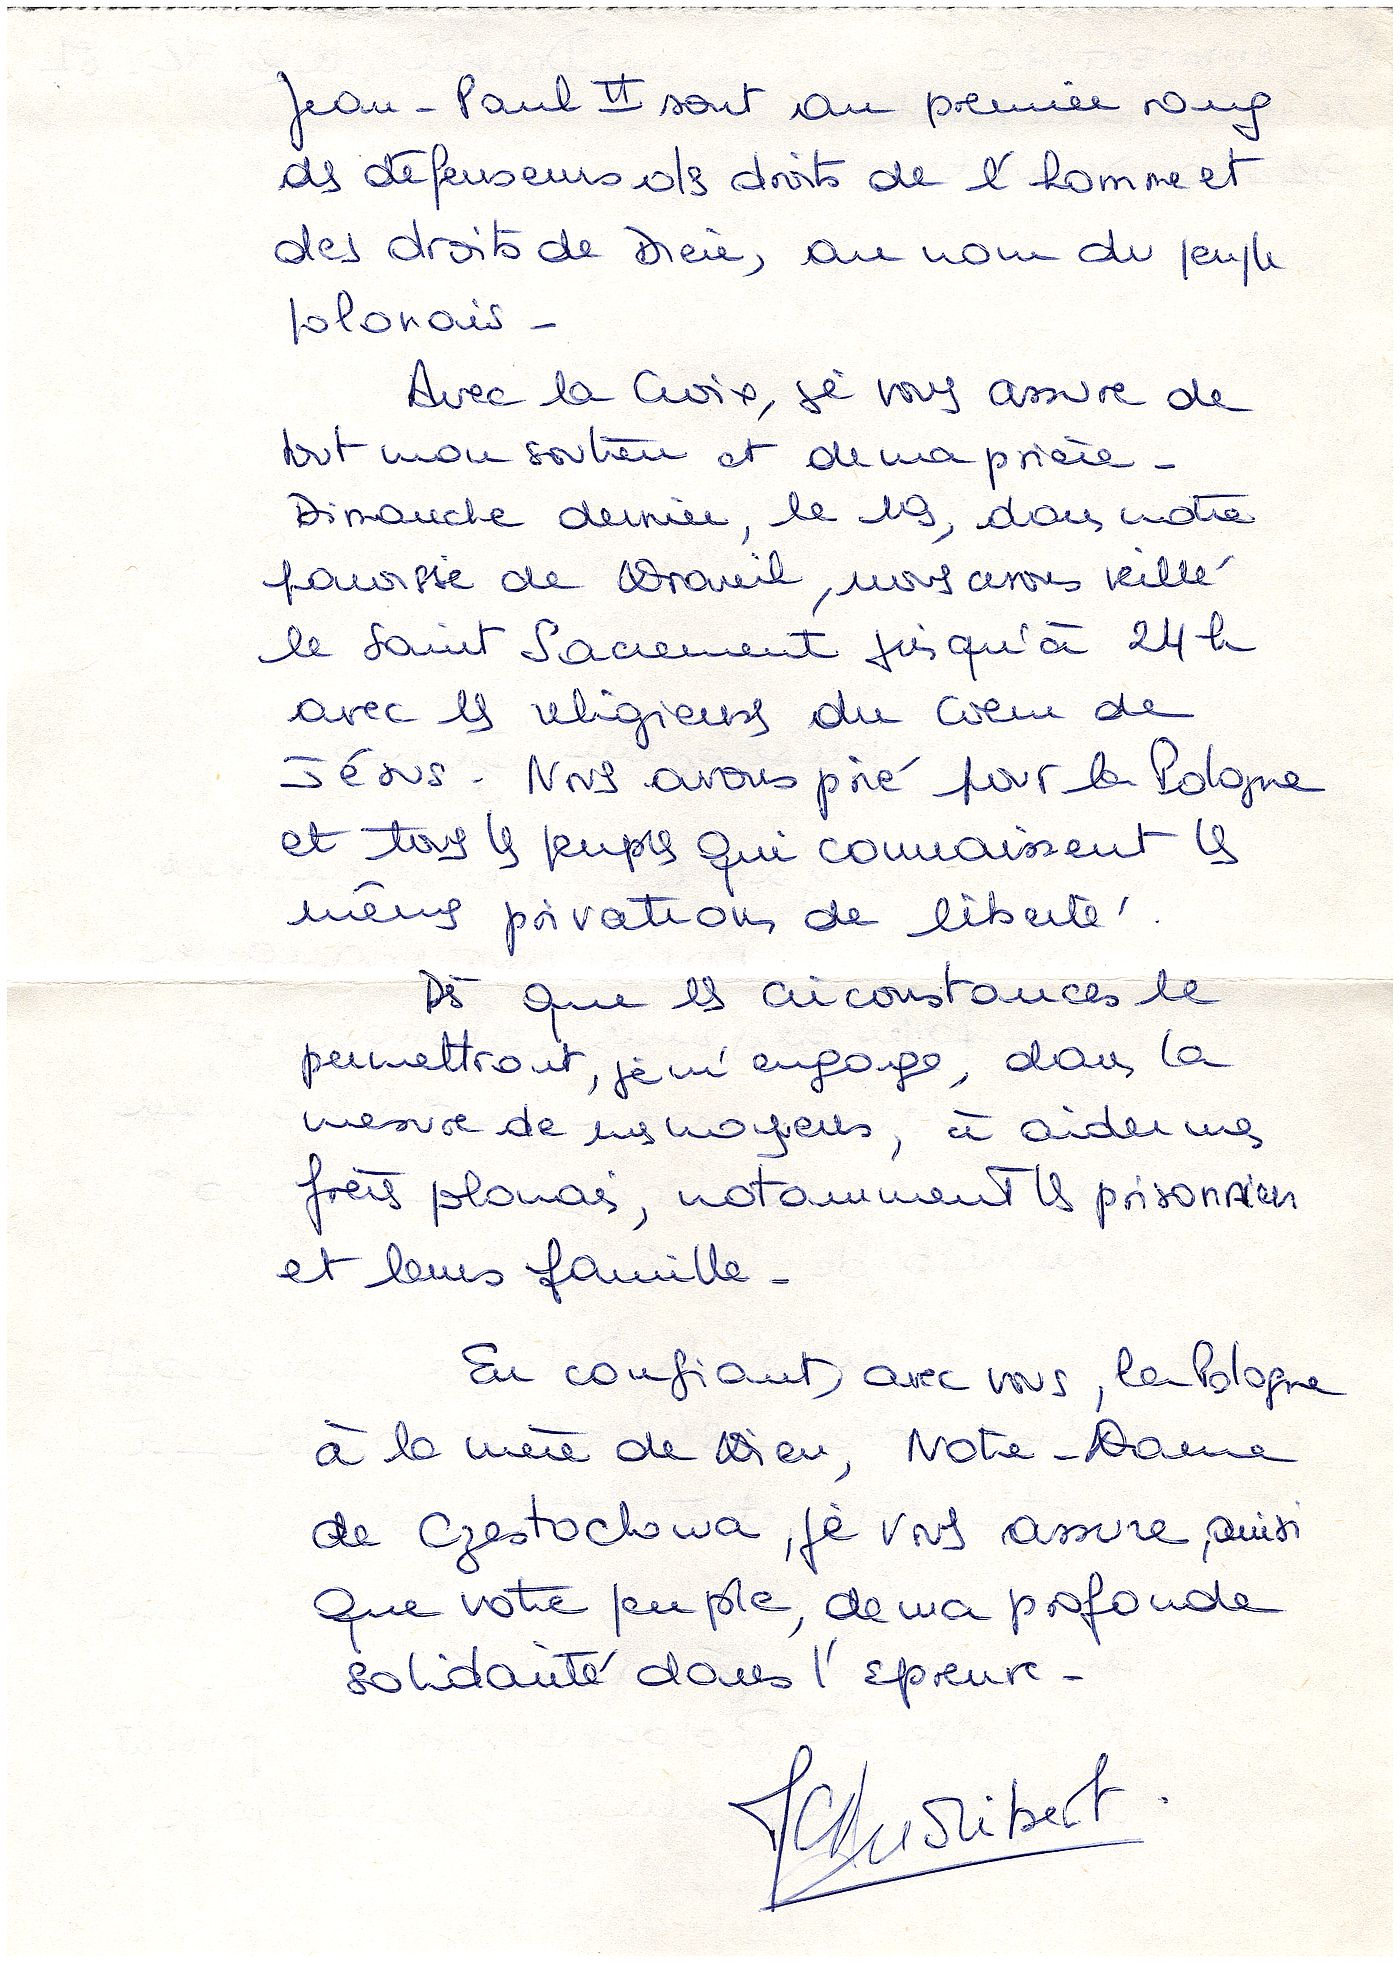 Jean-Paul II sont au premier rang
des défenseurs des droits de l'homme et
des droits de Dieu, au nom du peuple
polonais -
Avec la Croix, je vous assure de
tout mon soutien et de ma prière -
Dimanche dernier, le 19, dans notre
paroisse de Draveil, nous avons veillé
le Saint Sacrement jusqu'à 24 h
avec les religieuses du Coeur de
Jésus - Nous avons prié pour la Pologne
et tous les peuples qui connaissent les
mêmes privations de liberté.
Dès que les circonstances le
permettront, je m'engage, dans la
mesure de mes moyens, à aider mes
frères polonais, notamment les prisonniers
et leurs famille -
En confiant, avec vous, la Pologne
à la mère de Dieu, Notre-Dame
de Czestochowa, je vous assure, ainsi
que votre peuple, de ma profonde
solidarité dans l'épreuve -